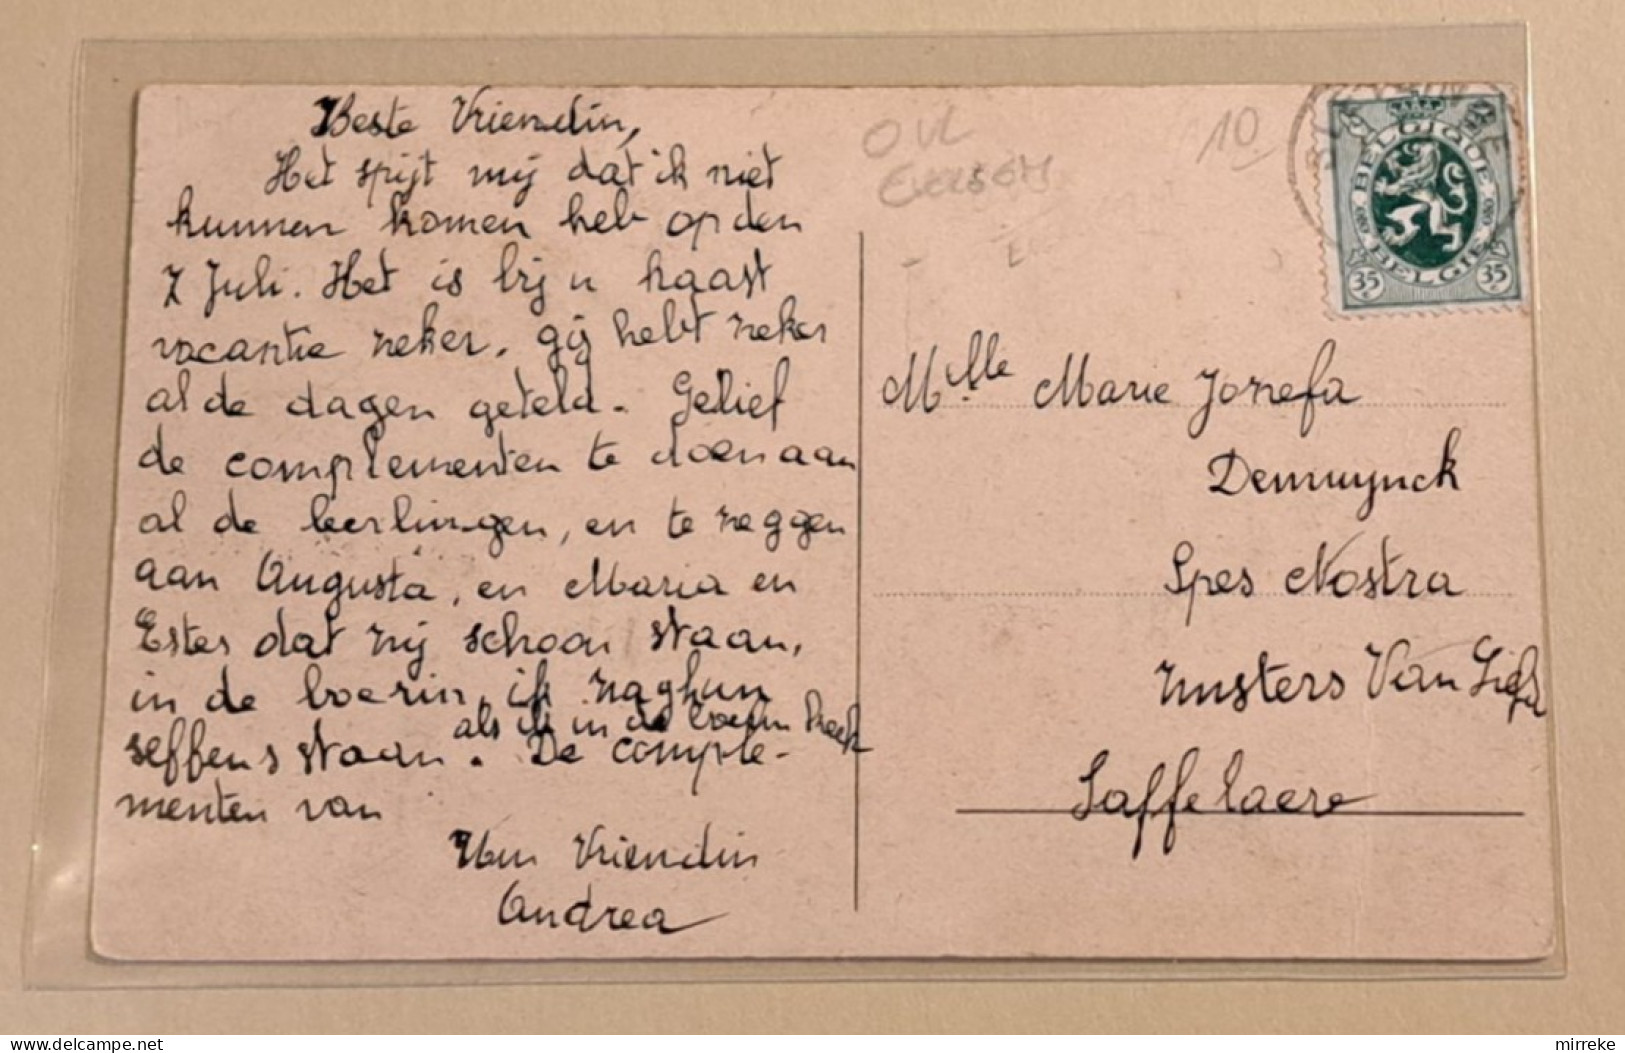 Beste Vriendin,
Het spijt mij dat ik niet
kunnen komen heb op den
7 Juli. Het is bij u haast
vacantie zeker. gij hebt zeker
al de dagen geteld. Gelief
de complementen te doen aan
al de leerlingen, en te zeggen
aan Augusta, en Maria en
Ester dat zij schoon staan,
in de boerin, ik zag hun
als ik in de boerin keek
seffens staan. De comple-
menten van
Uw Vriendin
Andrea
OVL
10
BELGIQUE
BELGIE
35 c
35 c
Mlle Marie Jozefa
Demuynck
Spes Nostra
zusters Van Liefd
Saffelaere
mirreke